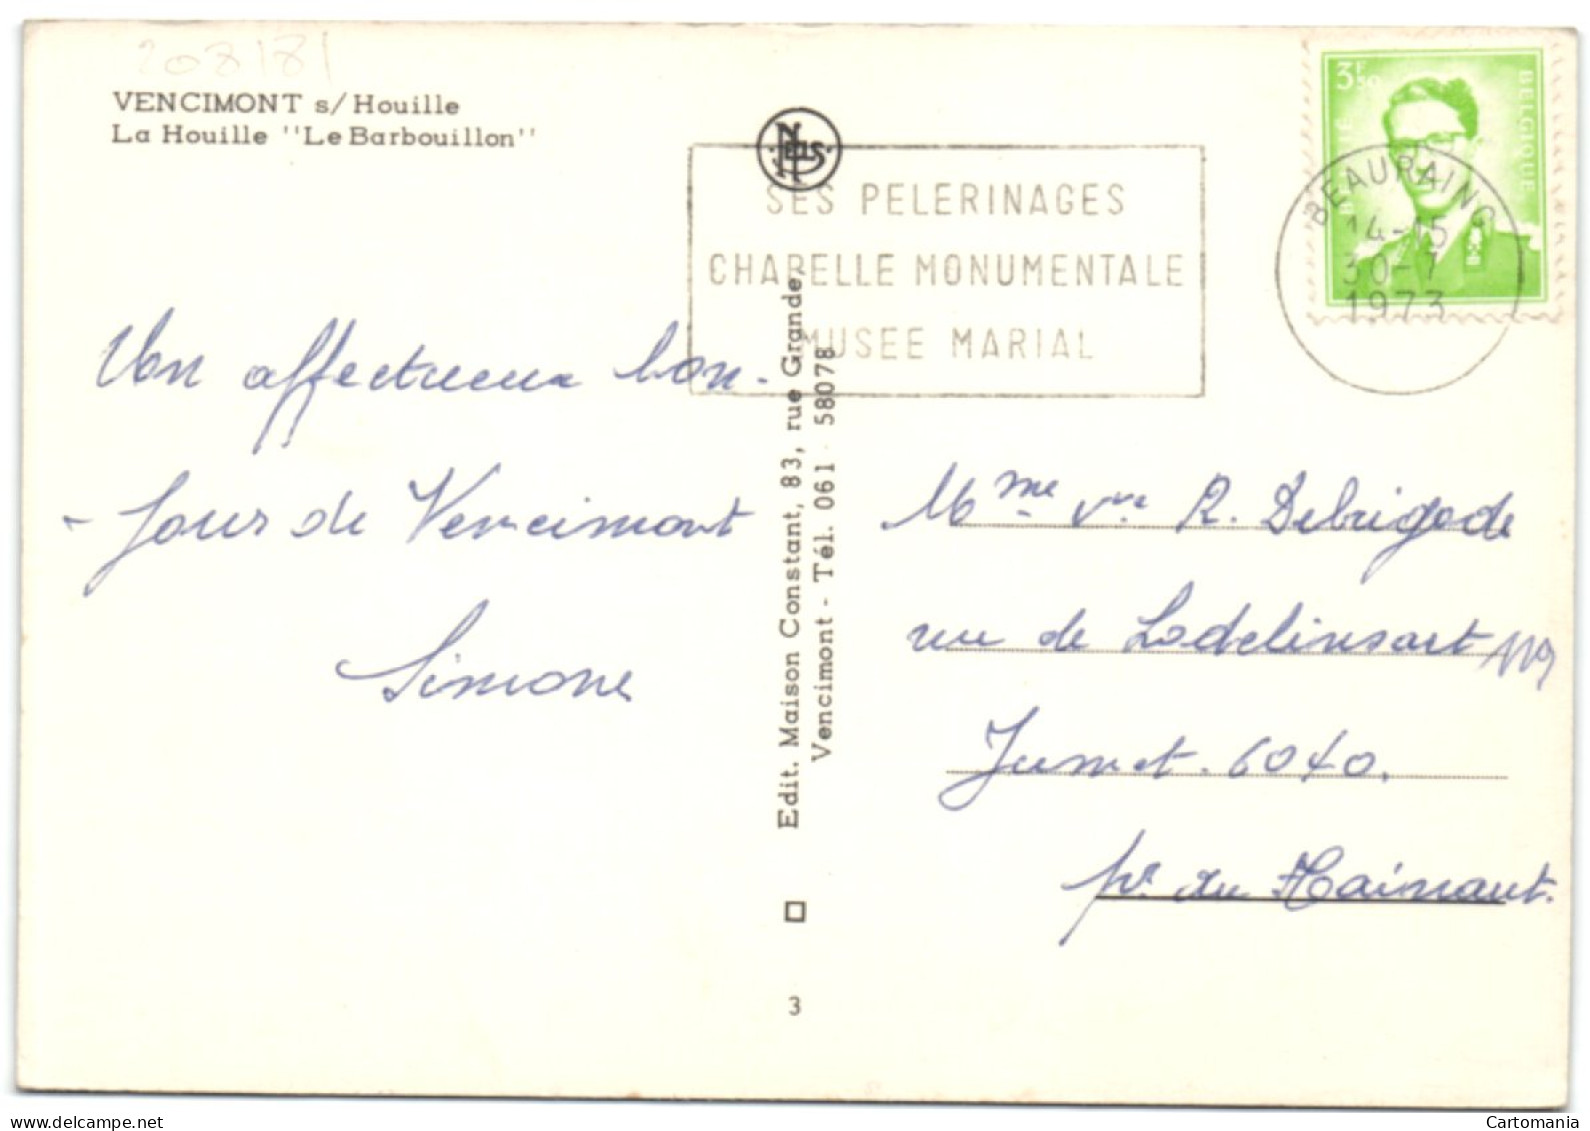 208181
VENCIMONT s/Houille
La Houille "Le Barbouillon"
Nels
SES PELERINAGES
CHAPELLE MONUMENTALE
MUSEE MARIAL
3F50
BELGIË
BELGIQUE
BEAURAING
14-15
30-7
1973
Un affectueux bon-
-jour de Vencimont
Simone
Edit. Maison Constant, 83, rue Grande,
Vencimont - Tél. 061 58078
3
Mme vve R. Debrigode
rue de Lodelinsart 119
Jumet. 6040.
pr. du Hainaut.
www.delcampe.net
Cartomania